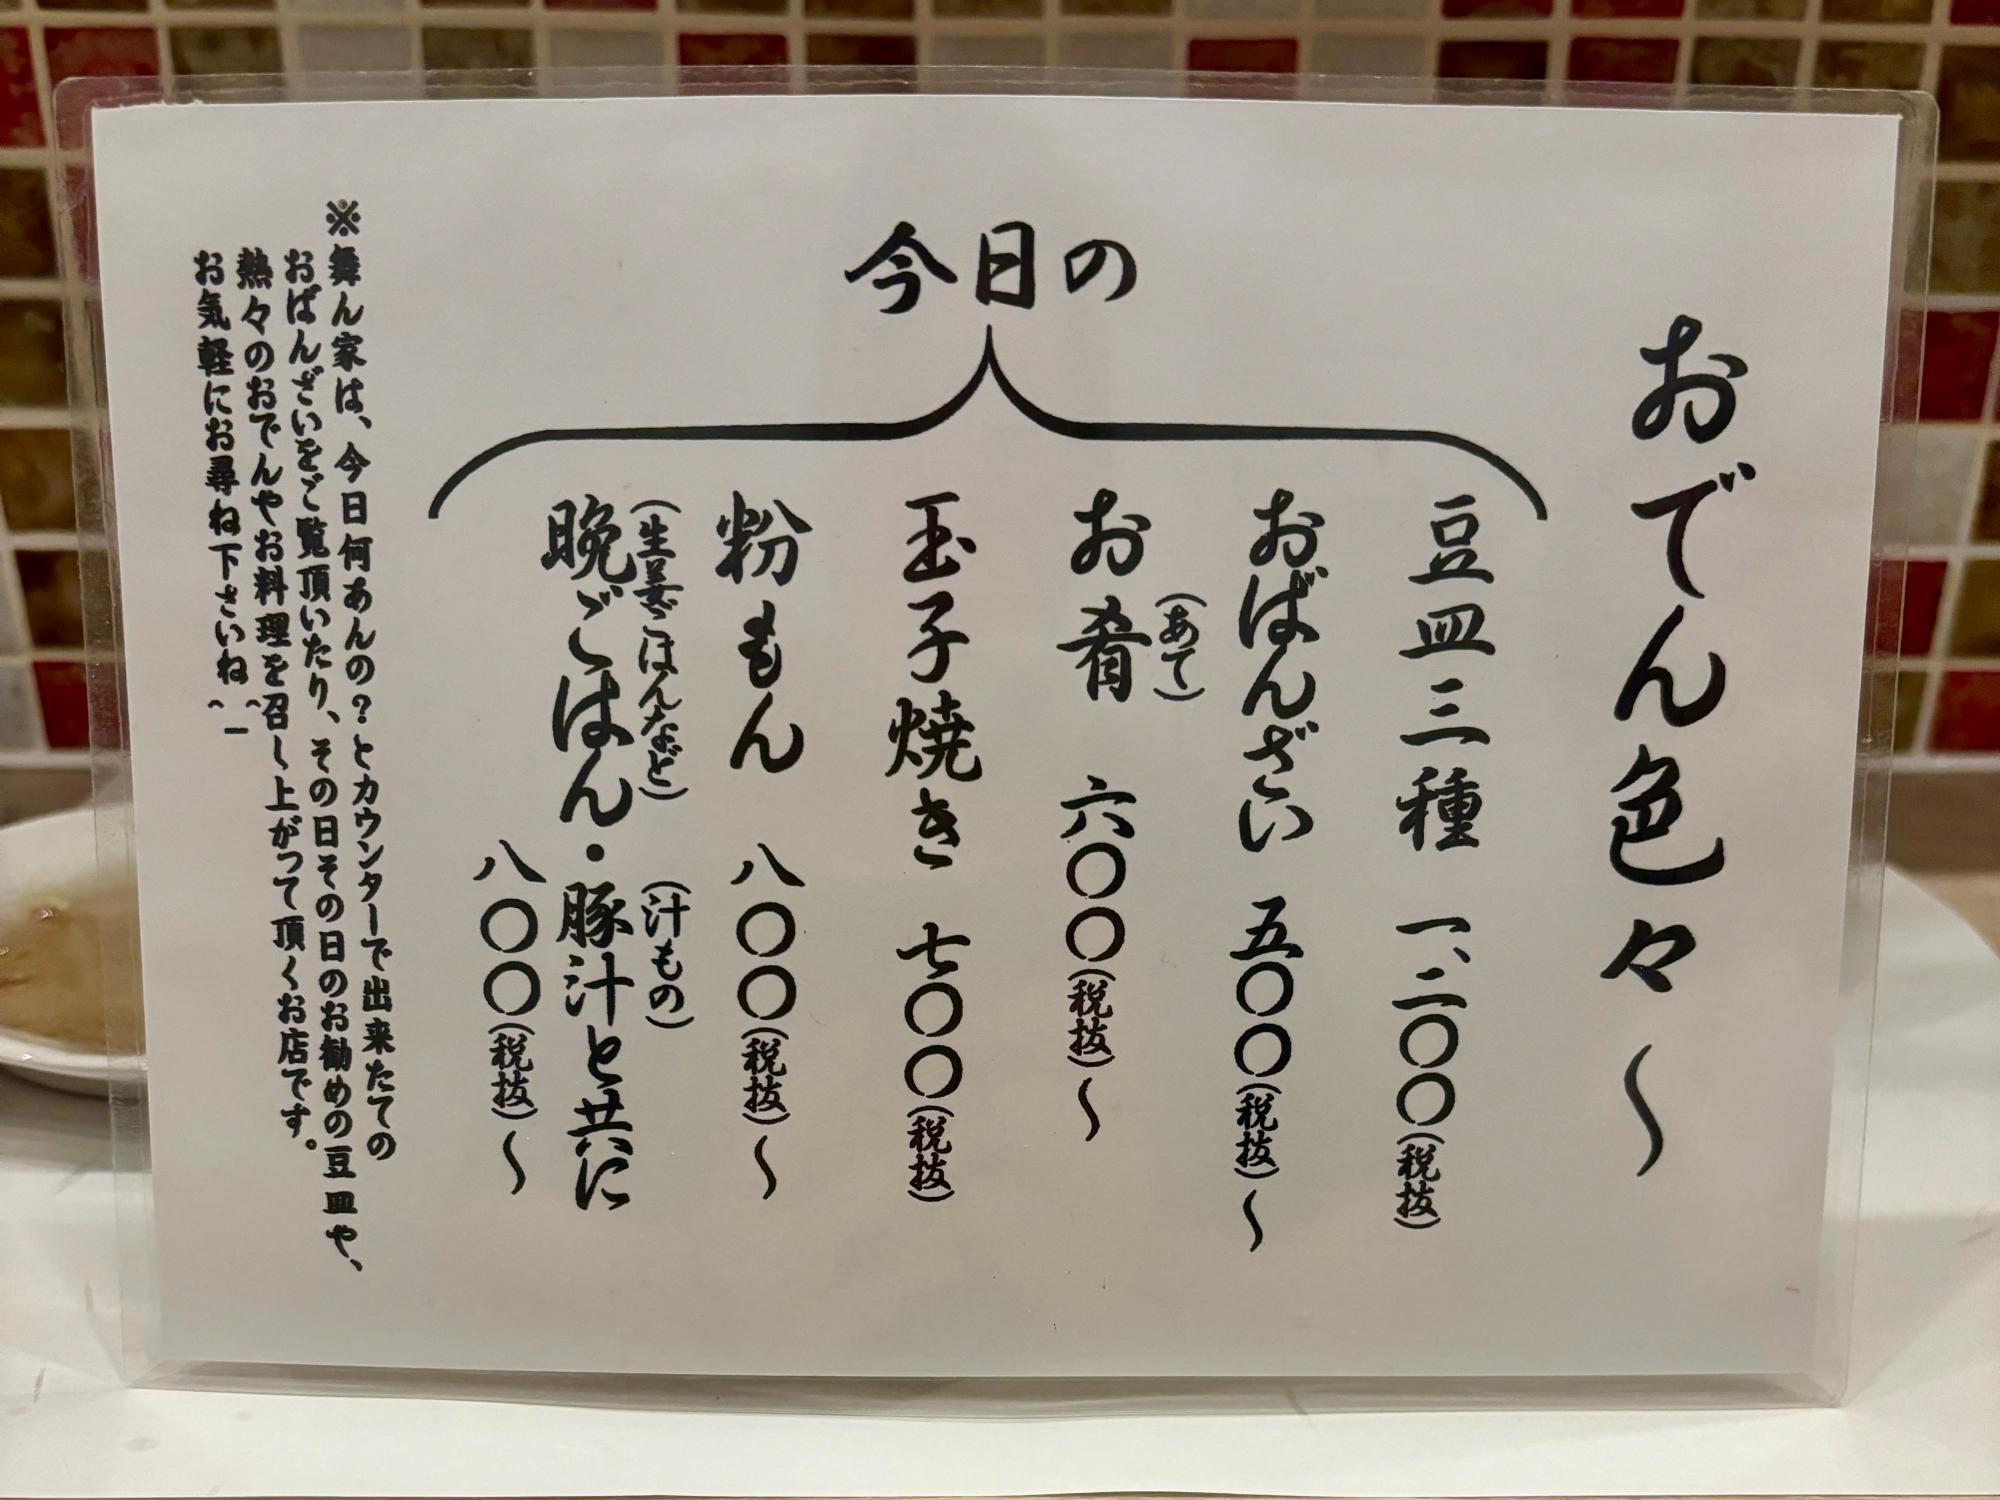 おでん色々〜
今日の
豆皿三種 一、二〇〇(税抜)
おばんざい 五〇〇(税抜)〜
(あて)
お肴 六〇〇(税抜)〜
玉子焼き 七〇〇(税抜)
粉もん 八〇〇(税抜)〜
(生姜ごはんなど) (汁もの)
晩ごはん・豚汁と共に
八〇〇(税抜)〜
※舞ん家は、今日何あんの?とカウンターで出来たての
おばんざいをご覧頂いたり、その日その日のお勧めの豆皿や、
熱々のおでんやお料理を召し上がって頂くお店です。
お気軽にお尋ね下さいね^_^